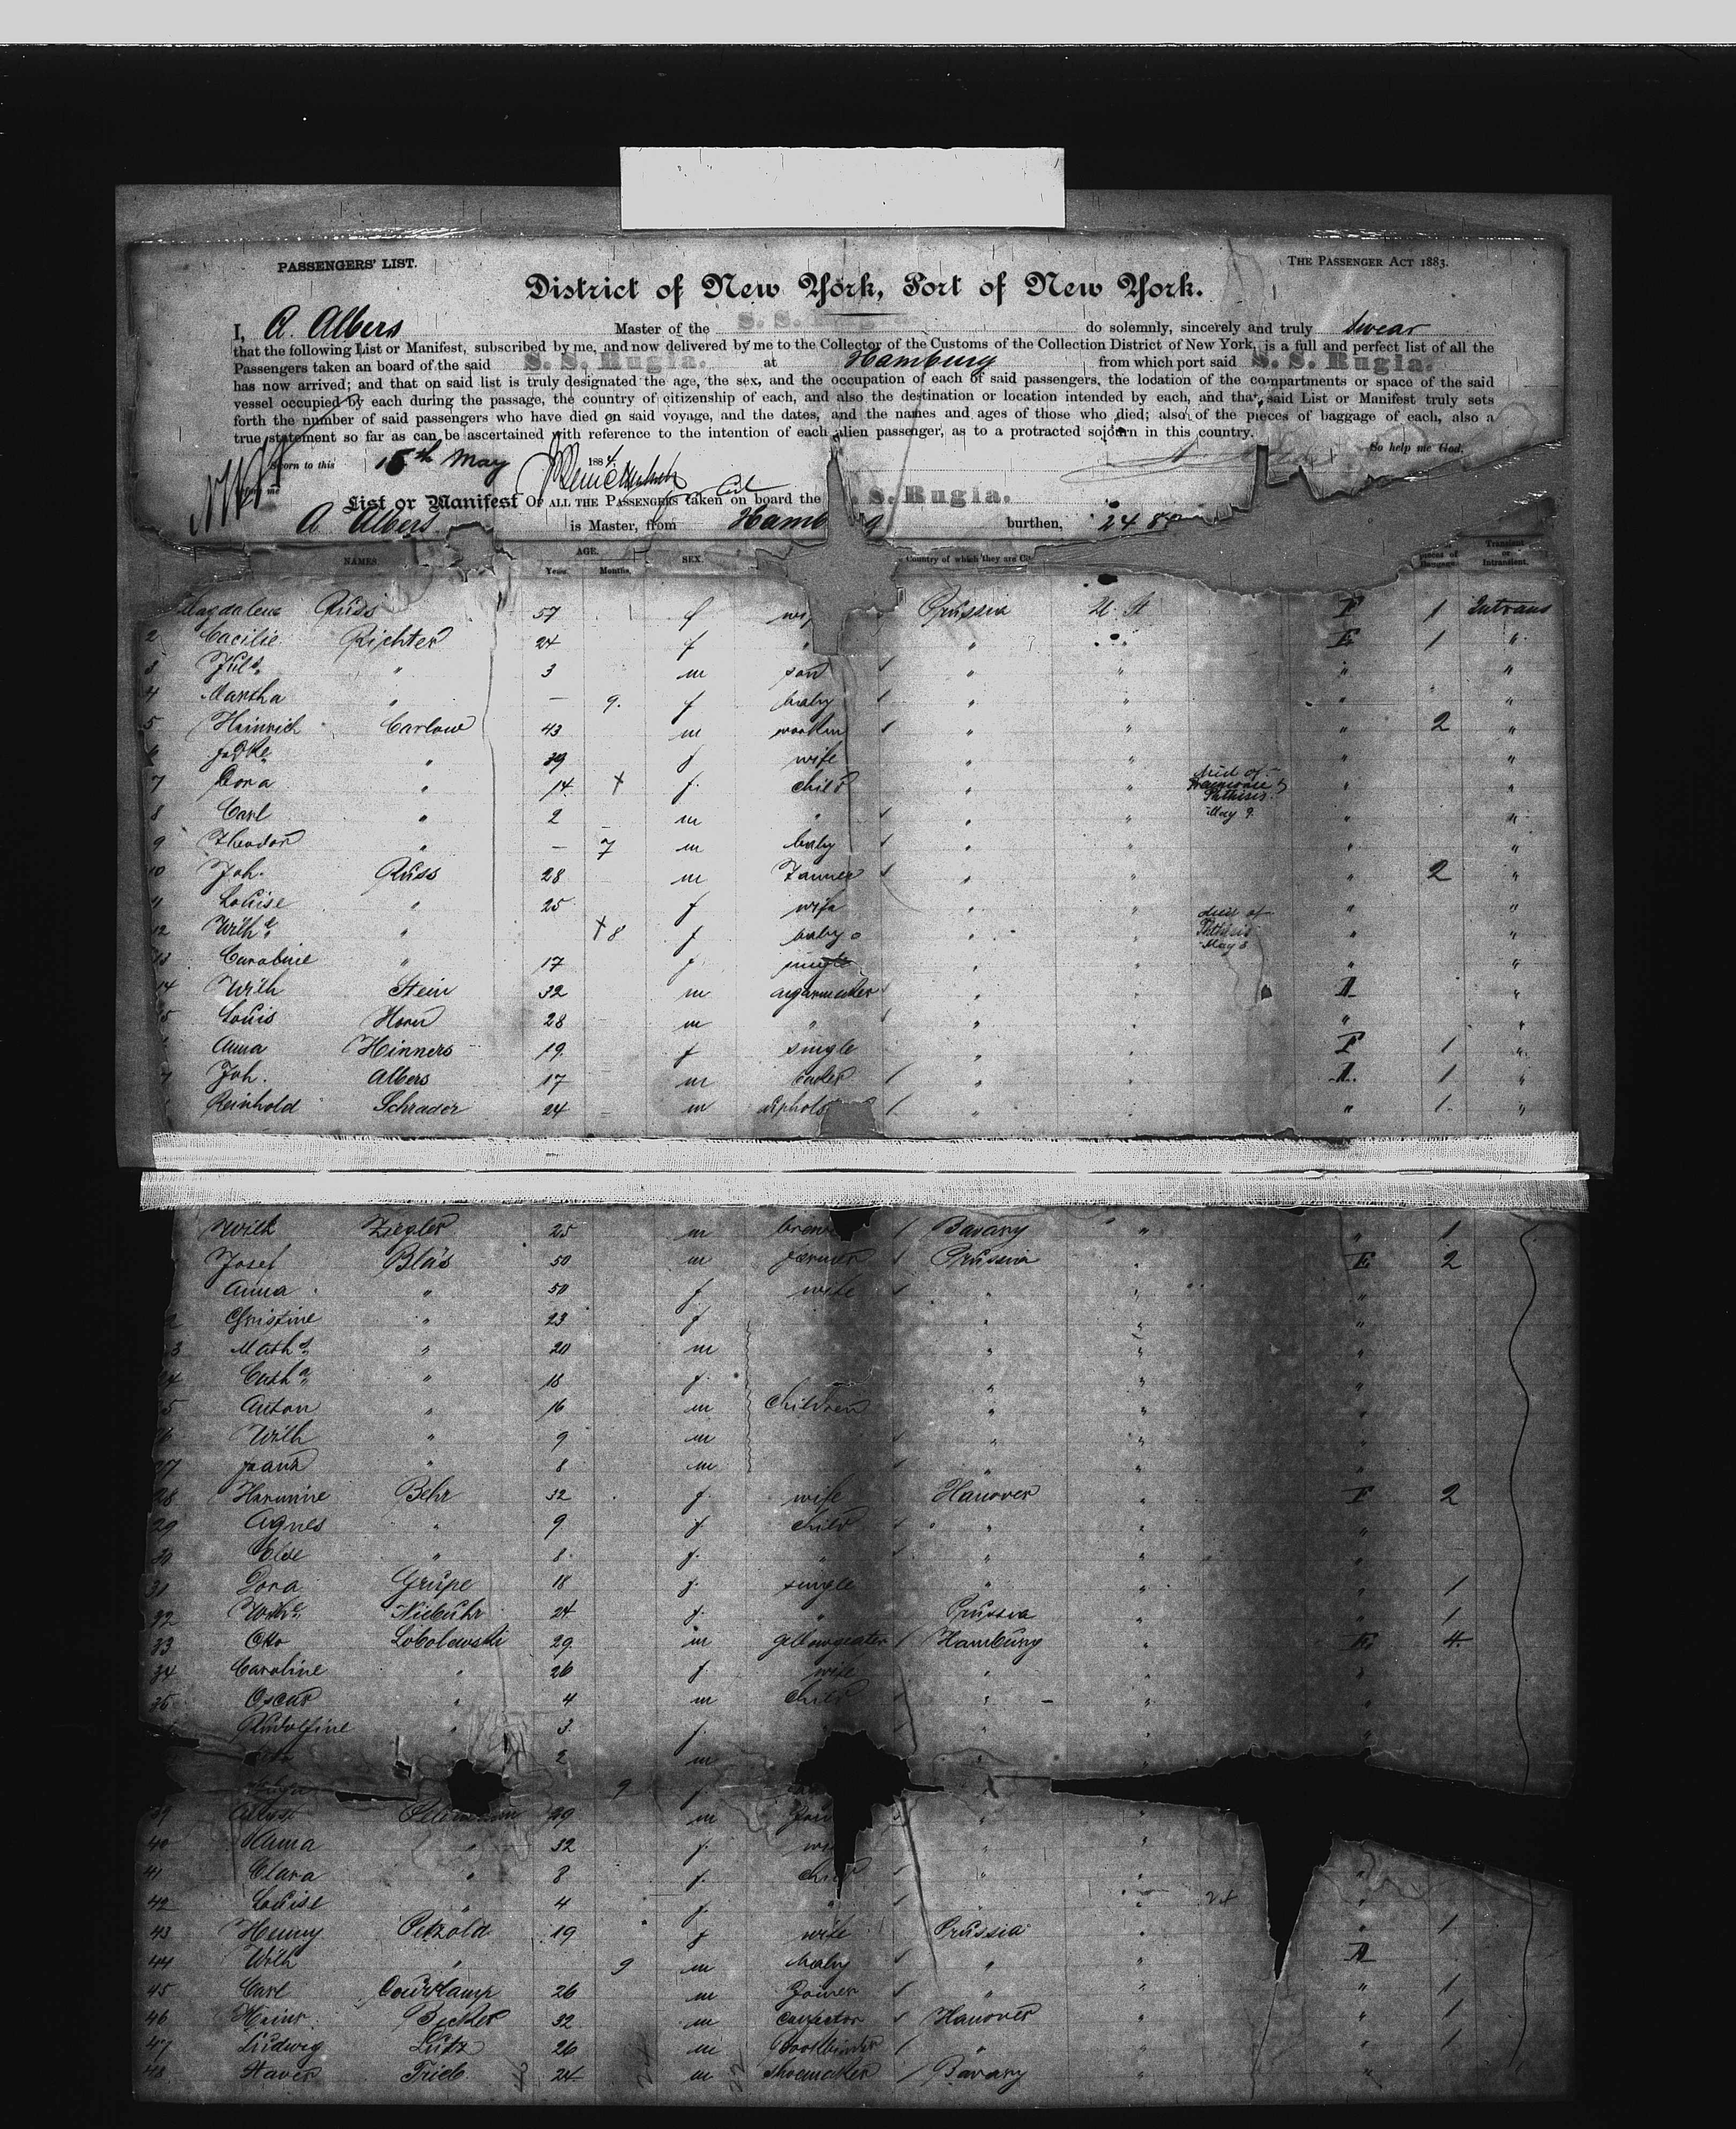 PASSENGERS' LIST.
THE PASSENGER ACT 1883.
District of New York, Port of New York.
I, A. Albers Master of the S. S. Rugia. do solemnly, sincerely and truly swear
that the following List or Manifest, subscribed by me, and now delivered by me to the Collector of the Customs of the Collection District of New York, is a full and perfect list of all the
Passengers taken an board of the said S. S. Rugia. at Hamburg from which port said S. S. Rugia.
has now arrived; and that on said list is truly designated the age, the sex, and the occupation of each of said passengers, the location of the compartments or space of the said
vessel occupied by each during the passage, the country of citizenship of each, and also the destination or location intended by each, and that said List or Manifest truly sets
forth the number of said passengers who have died on said voyage, and the dates, and the names and ages of those who died; also of the pieces of baggage of each, also a
true statement so far as can be ascertained with reference to the intention of each alien passenger, as to a protracted sojourn in this country.
So help me God.
Sworn to this 15th May 1884
List or Manifest OF ALL THE PASSENGERS taken on board the S. Rugia.
A. Albers is Master, from Hamb g burthen, 248
NAMES. AGE. Years. Months. SEX. Country of which they are Cit pieces of Baggage. Transient or Intransient.
Magdalena Russ 57 f Prussia U. St 1 Intrans
2 Cacilie Richter 24 f " " E 1 "
3 Juls. " 3 m son " " " "
4 Martha " — 9. f baby " " " "
5 Heinrich Carlow 43 m workm " " " 2 "
6 " 39 f wife " " " "
7 Dora " 14 + f. child " " died of Phthisis May 9 " "
8 Carl " 2 m " " " " "
9 Theodor " — 7 m baby " " " "
10 Joh. Russ 28 m " " " 2 "
11 Louise " 25 f wife " " " "
12 Wilh. " + 8 f baby " " died of Phthisis May 8 " "
13 Caroline " 17 f single " " " "
14 Wilh Stein 32 m cigarmaker " " "
15 Louis Horn 28 m " " " " "
Anna Hinners 19. f single " " F 1 "
Joh. Albers 17 m " " 1 "
Reinhold Schrader 24 m uphols " " 1 "
Wilh Ziegler 25 m brew Bavary " " 1
Josef Bläs 50 m farmer Prussia " E 2
Anna " 50 f wife " " "
Christine " 23 f " " "
3 Maths. " 20 m " " "
24 Catha. " 18 f. " " "
5 Anton " 16 m children " " "
Wilh " 9 m " " "
27 " 8 m " " "
28 Hermine Behr 32 f. wife Hanover " F 2
29 Agnes " 9 f. child " " "
30 Else " 8. f. " " " "
31 Dora Grupe 18 f. single " " " 1
32 Niebuhr 24 f. " Prussia " " 1
33 Otto 29 m Hamburg " E. 4
34 Caroline " 26 f. wife " " "
35 Oscar " 4 m child " " "
Rudolfine " 3. f. " " "
2 m
9 f.
39 m " "
40 Anna " 32 f. wi " "
41 Clara " 8 f. chil " " "
42 Louise " 4 f. " " " 24 "
43 Henny Petzold 19 f wife Prussia " " 1
44 Wilh " 9 m baby " "
45 Carl 26 m Joiner " " " 1
46 Heinr. Becker 32 m Hanover " " 1
47 Ludwig Lutz 26 m bookbinder " " " 1
48 Xaver Trieb 24 m shoemaker Bavary " "